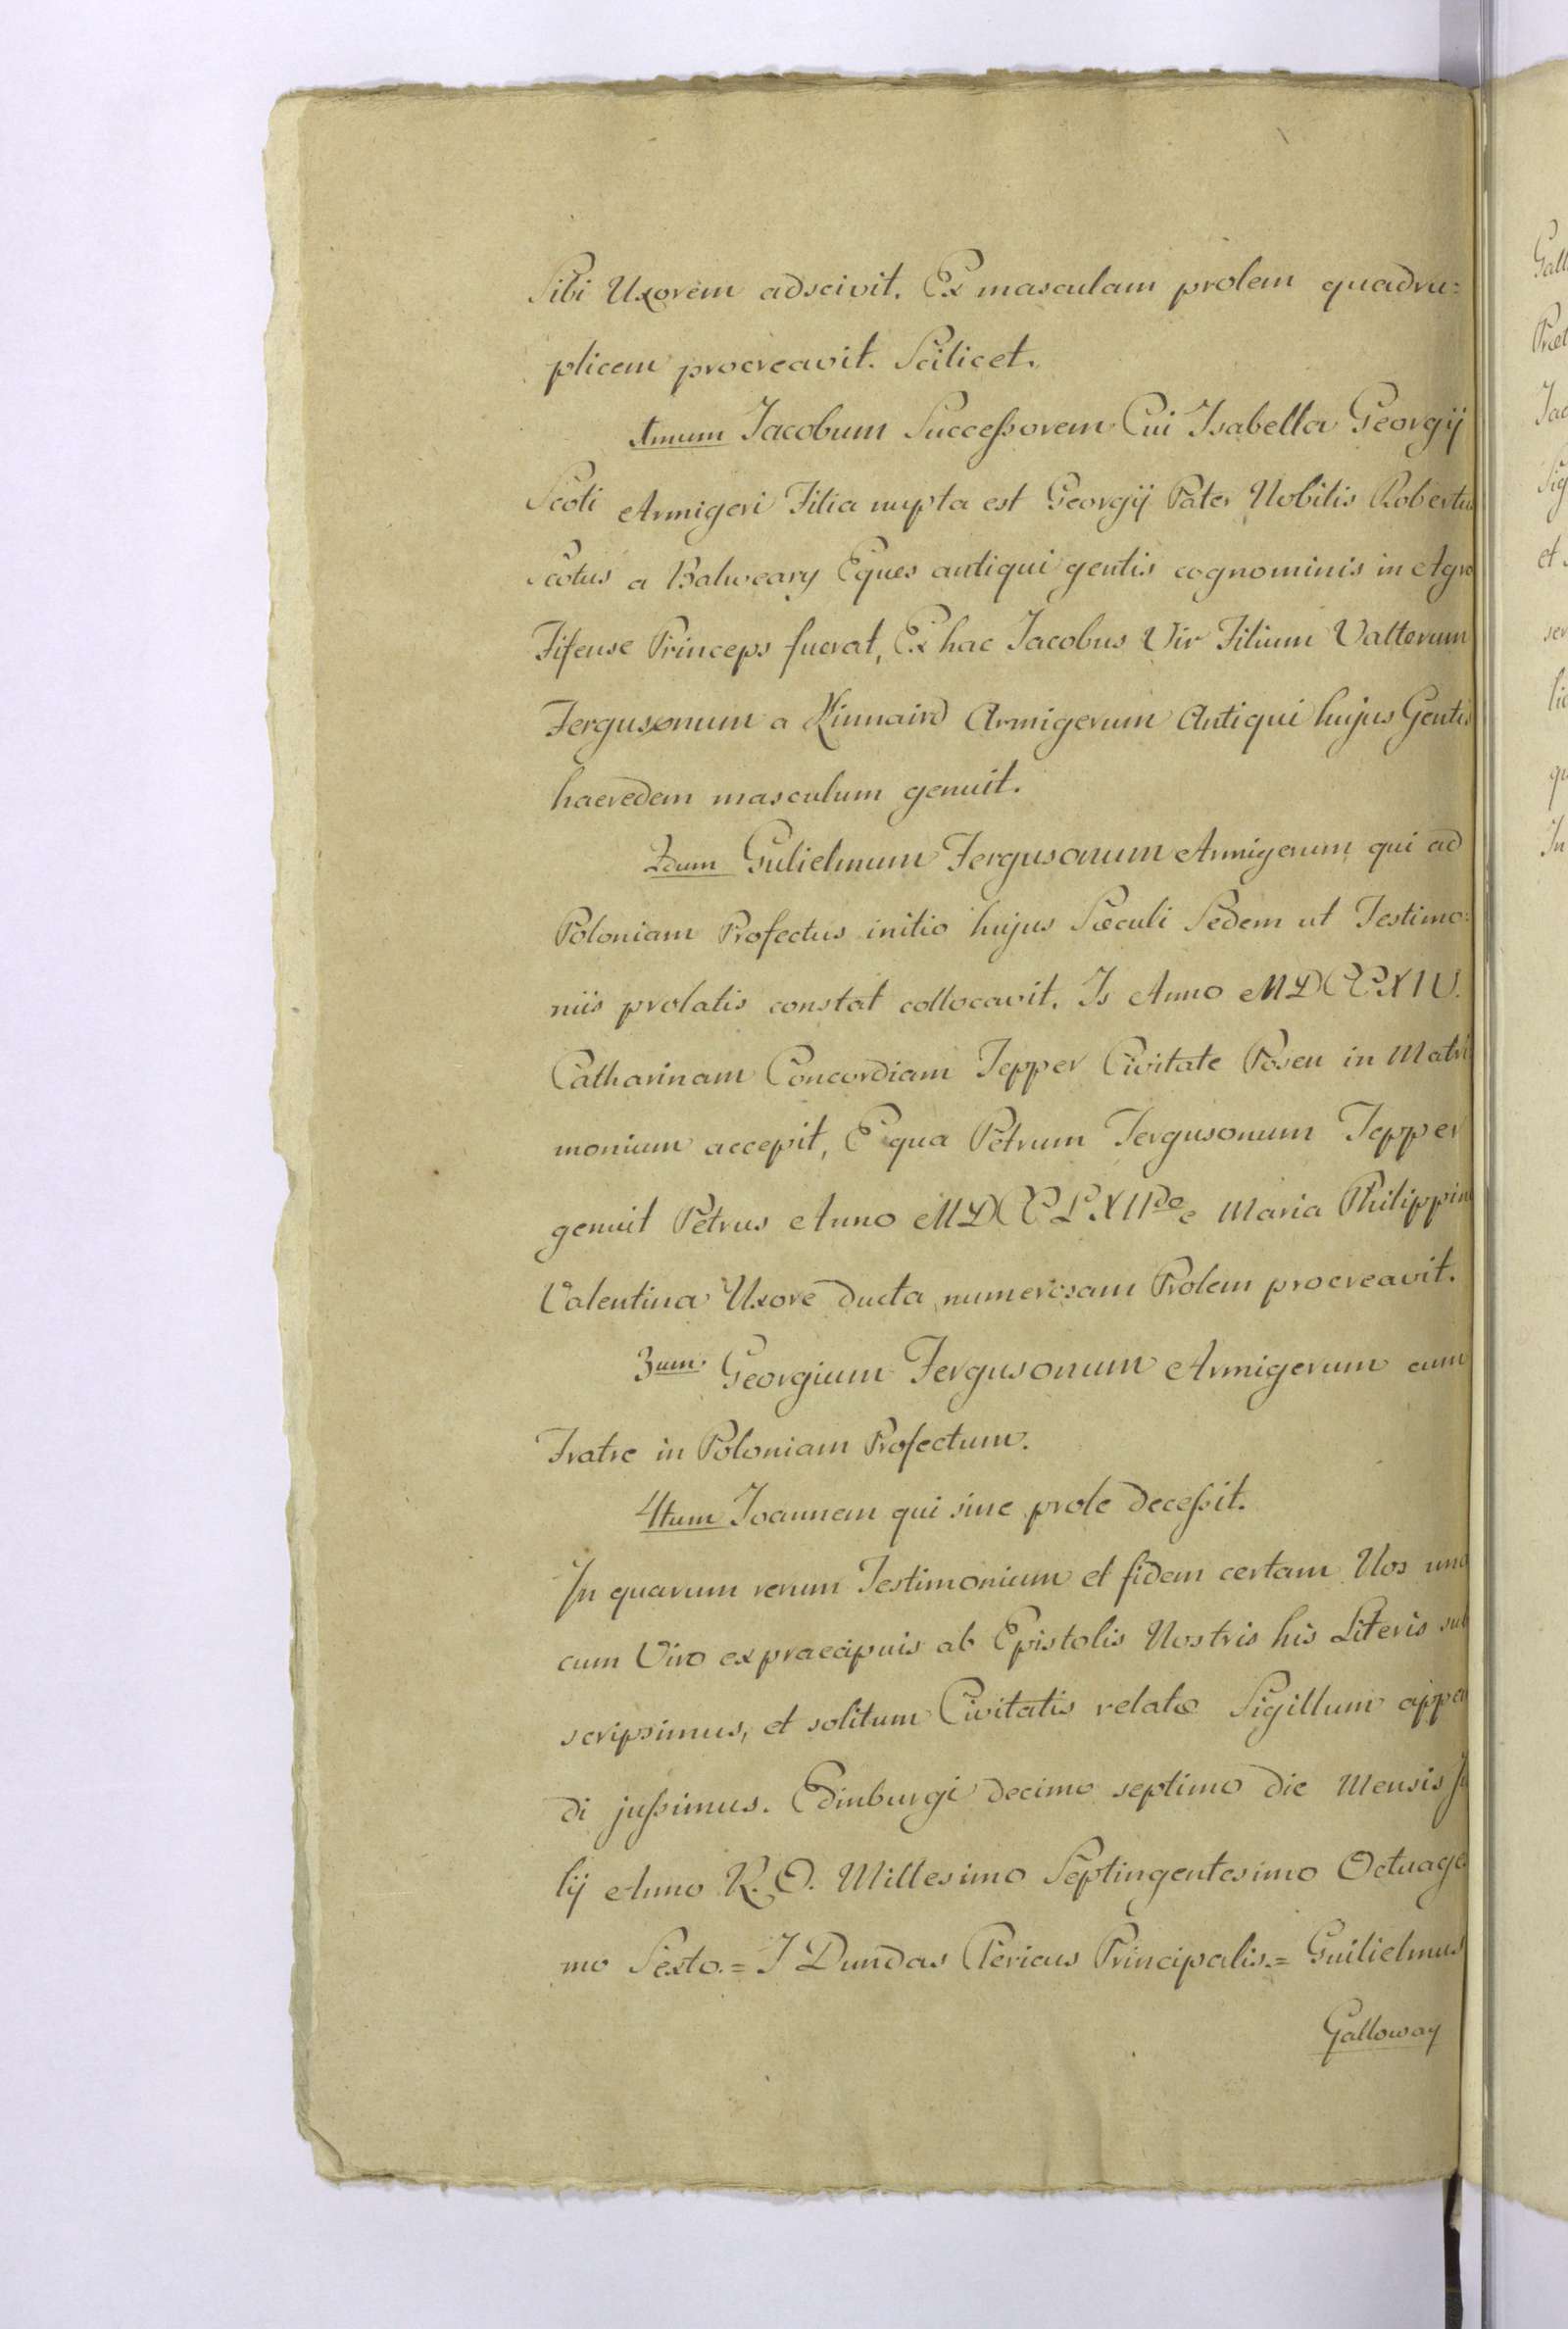 Sibi Uxorem adscivit. Ex masculam prolem quadru=
plicem procreavit. Scilicet.
1mum Jacobum Successorem Cui Isabella Georgij
Scoti Armigeri Filia nupta est Georgij Pater Nobilis Robertus
Scotus a Balweary Eques antiqui gentis cognominis in Agro
Fifense Princeps fuerat, Ex hac Jacobus Vir Filium Valterum
Fergusonum a Kinnaird Armigerum Antiqui hujus Gentis
haeredem masculum genuit.
2dum Gulielmum Fergusonum Armigerum qui ad
Poloniam Profectus initio hujus Sæculi Sedem ut Testimo=
niis prolatis constat collocavit. Is Anno MDCCXIV.
Catharinam Concordiam Tepper Civitate Posen in Matri
monium accepit, E qua Petrum Fergusonum Tepper
genuit Petrus Anno MDCCLXIIdo e Maria Philippina
Valentina Uxore ducta numerosam Prolem procreavit.
3um. Georgium Fergusonum Armigerum cum
Fratre in Poloniam Profectum.
4tum Joannem qui sine prole decessit.
In quarum rerum Testimonium et fidem certam Nos una
cum Viro ex praecipuis ab Epistolis Nostris his Literis sub
scripsimus, et solitum Civitatis relatæ Sigillum appen
di jussimus. Edinburgi decimo septimo die Mensis Ju
lij Anno R. O. Millesimo Septingentesimo Octuage
mo Sexto.= J Dundas Clericus Principalis.= Guilielmus
Galloway